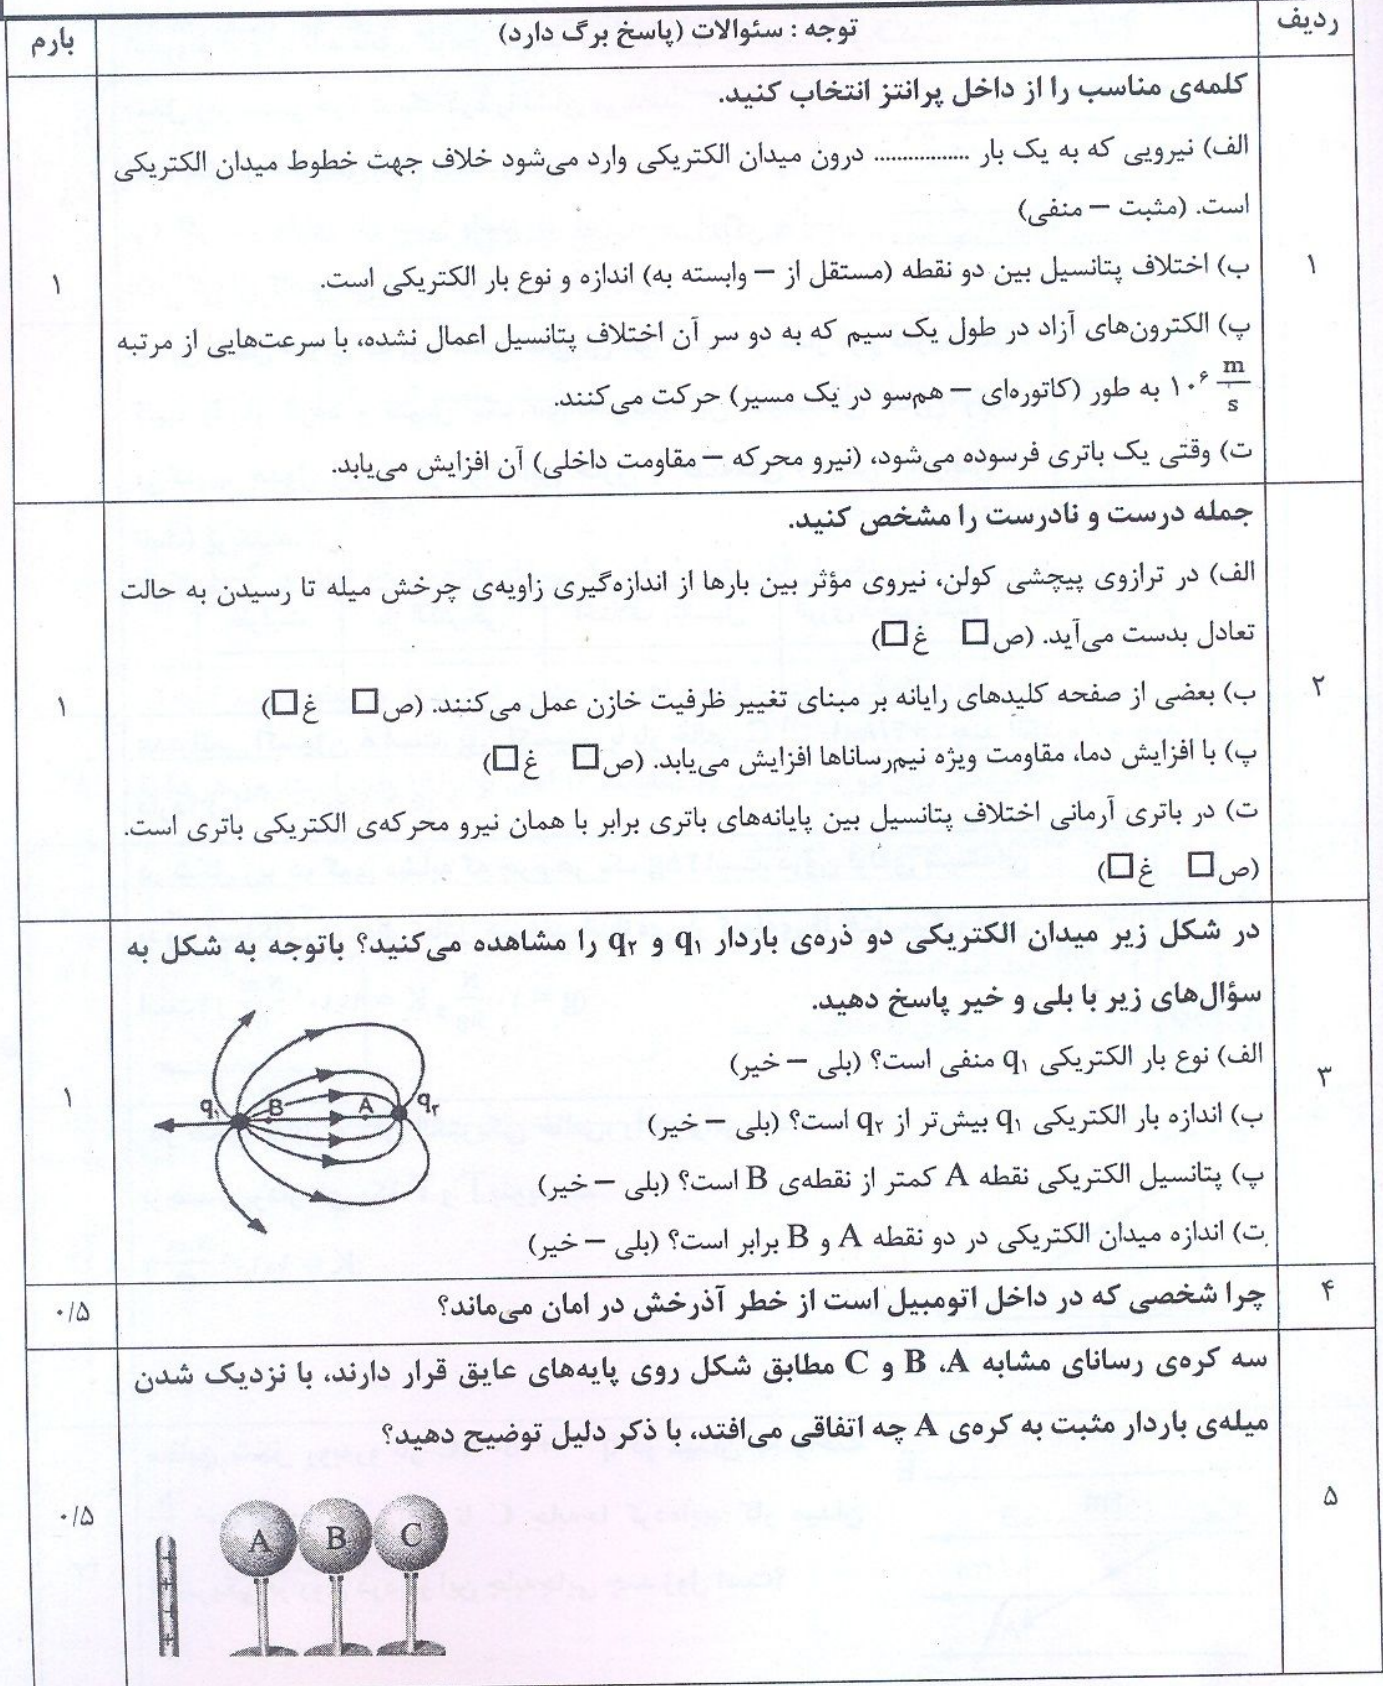 ردیف
توجه : سئوالات (پاسخ برگ دارد)
بارم
۱
کلمه‌ی مناسب را از داخل پرانتز انتخاب کنید.
الف) نیرویی که به یک بار ................ درون میدان الکتریکی وارد می‌شود خلاف جهت خطوط میدان الکتریکی
است. (مثبت – منفی)
ب) اختلاف پتانسیل بین دو نقطه (مستقل از – وابسته به) اندازه و نوع بار الکتریکی است.
پ) الکترون‌های آزاد در طول یک سیم که به دو سر آن اختلاف پتانسیل اعمال نشده، با سرعت‌هایی از مرتبه
۱۰⁶ m/s به طور (کاتوره‌ای – هم‌سو در یک مسیر) حرکت می‌کنند.
ت) وقتی یک باتری فرسوده می‌شود، (نیرو محرکه – مقاومت داخلی) آن افزایش می‌یابد.
۱
۲
جمله درست و نادرست را مشخص کنید.
الف) در ترازوی پیچشی کولن، نیروی مؤثر بین بارها از اندازه‌گیری زاویه‌ی چرخش میله تا رسیدن به حالت
تعادل بدست می‌آید. (ص□ غ□)
ب) بعضی از صفحه کلیدهای رایانه بر مبنای تغییر ظرفیت خازن عمل می‌کنند. (ص□ غ□)
پ) با افزایش دما، مقاومت ویژه نیم‌رساناها افزایش می‌یابد. (ص□ غ□)
ت) در باتری آرمانی اختلاف پتانسیل بین پایانه‌های باتری برابر با همان نیرو محرکه‌ی الکتریکی باتری است.
(ص□ غ□)
۱
۳
در شکل زیر میدان الکتریکی دو ذره‌ی باردار q₁ و q₂ را مشاهده می‌کنید؟ باتوجه به شکل به
سؤال‌های زیر با بلی و خیر پاسخ دهید.
الف) نوع بار الکتریکی q₁ منفی است؟ (بلی – خیر)
ب) اندازه بار الکتریکی q₁ بیش‌تر از q₂ است؟ (بلی – خیر)
پ) پتانسیل الکتریکی نقطه A کمتر از نقطه‌ی B است؟ (بلی – خیر)
ت) اندازه میدان الکتریکی در دو نقطه A و B برابر است؟ (بلی – خیر)
q₁ B A q₂
۱
۴
چرا شخصی که در داخل اتومبیل است از خطر آذرخش در امان می‌ماند؟
۰/۵
۵
سه کره‌ی رسانای مشابه A، B و C مطابق شکل روی پایه‌های عایق قرار دارند، با نزدیک شدن
میله‌ی باردار مثبت به کره‌ی A چه اتفاقی می‌افتد، با ذکر دلیل توضیح دهید؟
A B C
+
+
+
+
۰/۵